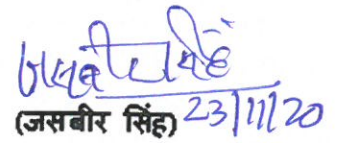 (जसबीर सिंह) 23/11/20